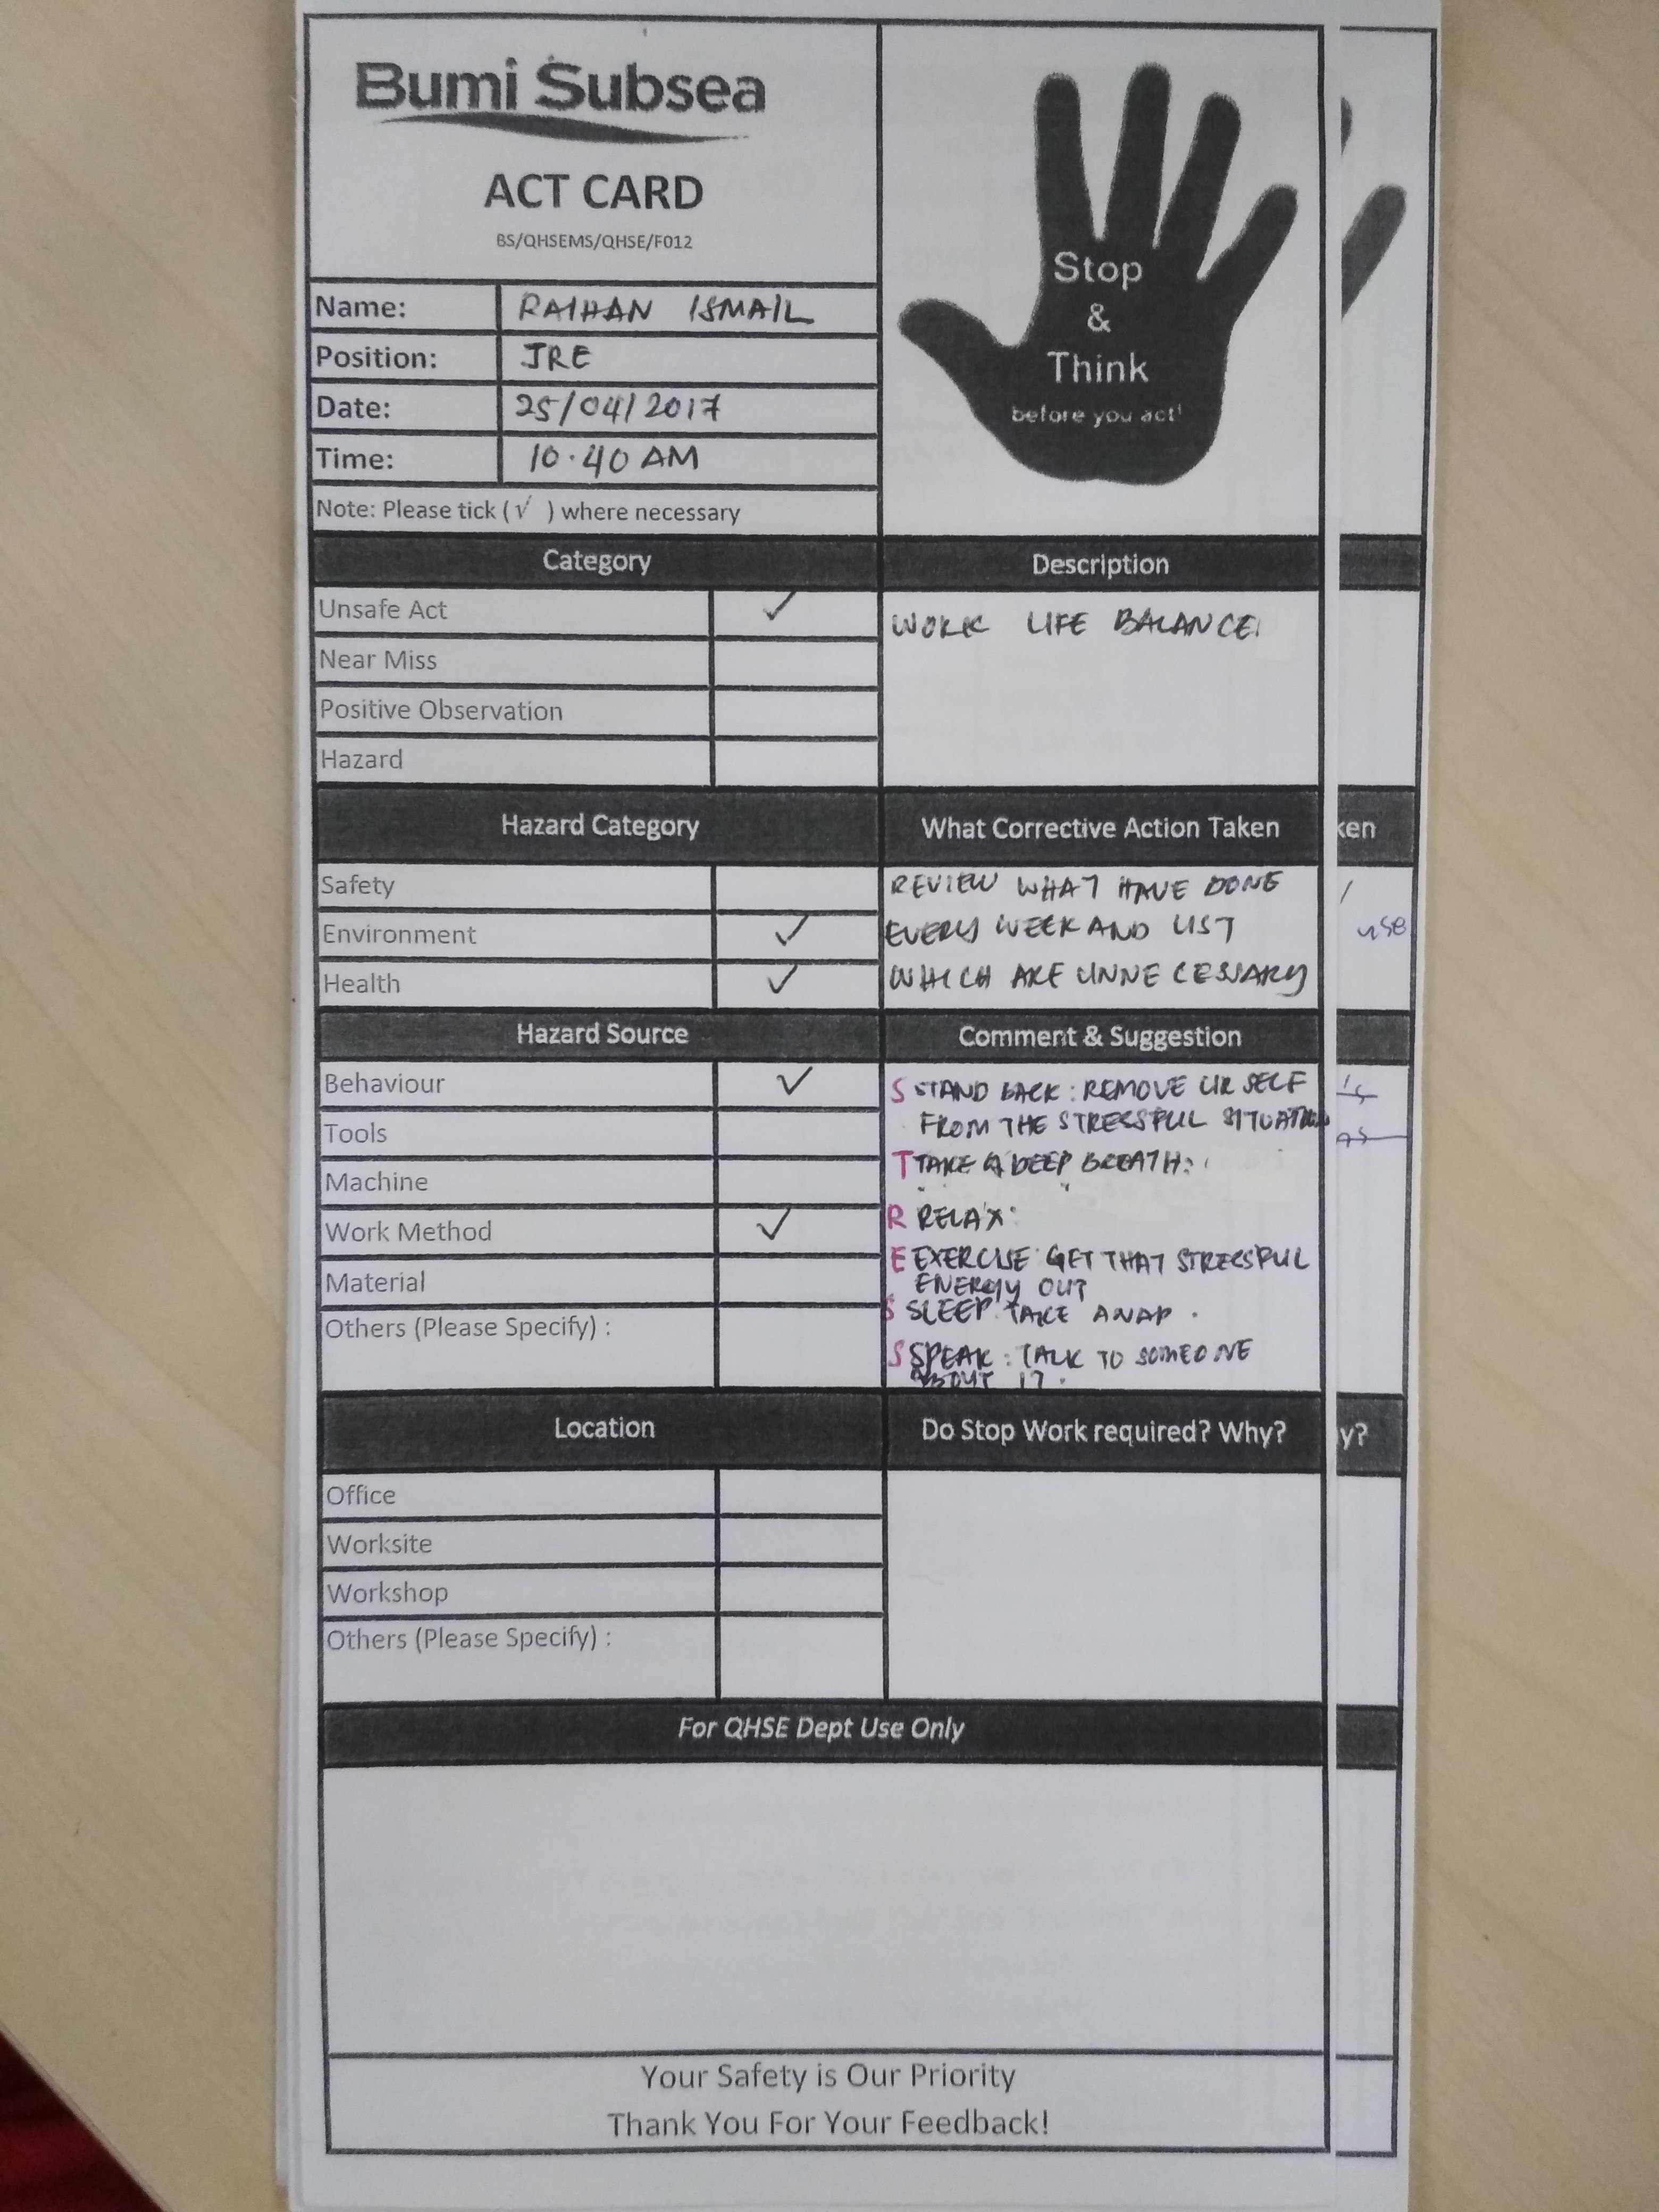 Bumi Subsea
ACT CARD
BS/QHSEMS/QHSE/F012
Stop
&
Think
before you act!
Name: RAIHAN ISMAIL
Position: JRE
Date: 25/04/2017
Time: 10.40 AM
Note: Please tick (√ ) where necessary
Category
Unsafe Act ✓
Near Miss
Positive Observation
Hazard
Description
WORK LIFE BALANCE
Hazard Category
Safety
Environment ✓
Health ✓
What Corrective Action Taken
REVIEW WHAT HAVE DONE
EVERY WEEK AND LIST
WHICH ARE UNNECESSARY
Hazard Source
Behaviour ✓
Tools
Machine
Work Method ✓
Material
Others (Please Specify) :
Comment & Suggestion
S STAND BACK : REMOVE UR SELF
FROM THE STRESSFUL SITUATION
T TAKE A DEEP BREATH.
R RELAX
E EXERCISE : GET THAT STRESSFUL
ENERGY OUT
S SLEEP. TAKE A NAP.
S SPEAK : TALK TO SOMEONE
ABOUT IT.
Location
Office
Worksite
Workshop
Others (Please Specify) :
Do Stop Work required? Why?
For QHSE Dept Use Only
Your Safety is Our Priority
Thank You For Your Feedback!
ken
use
y?